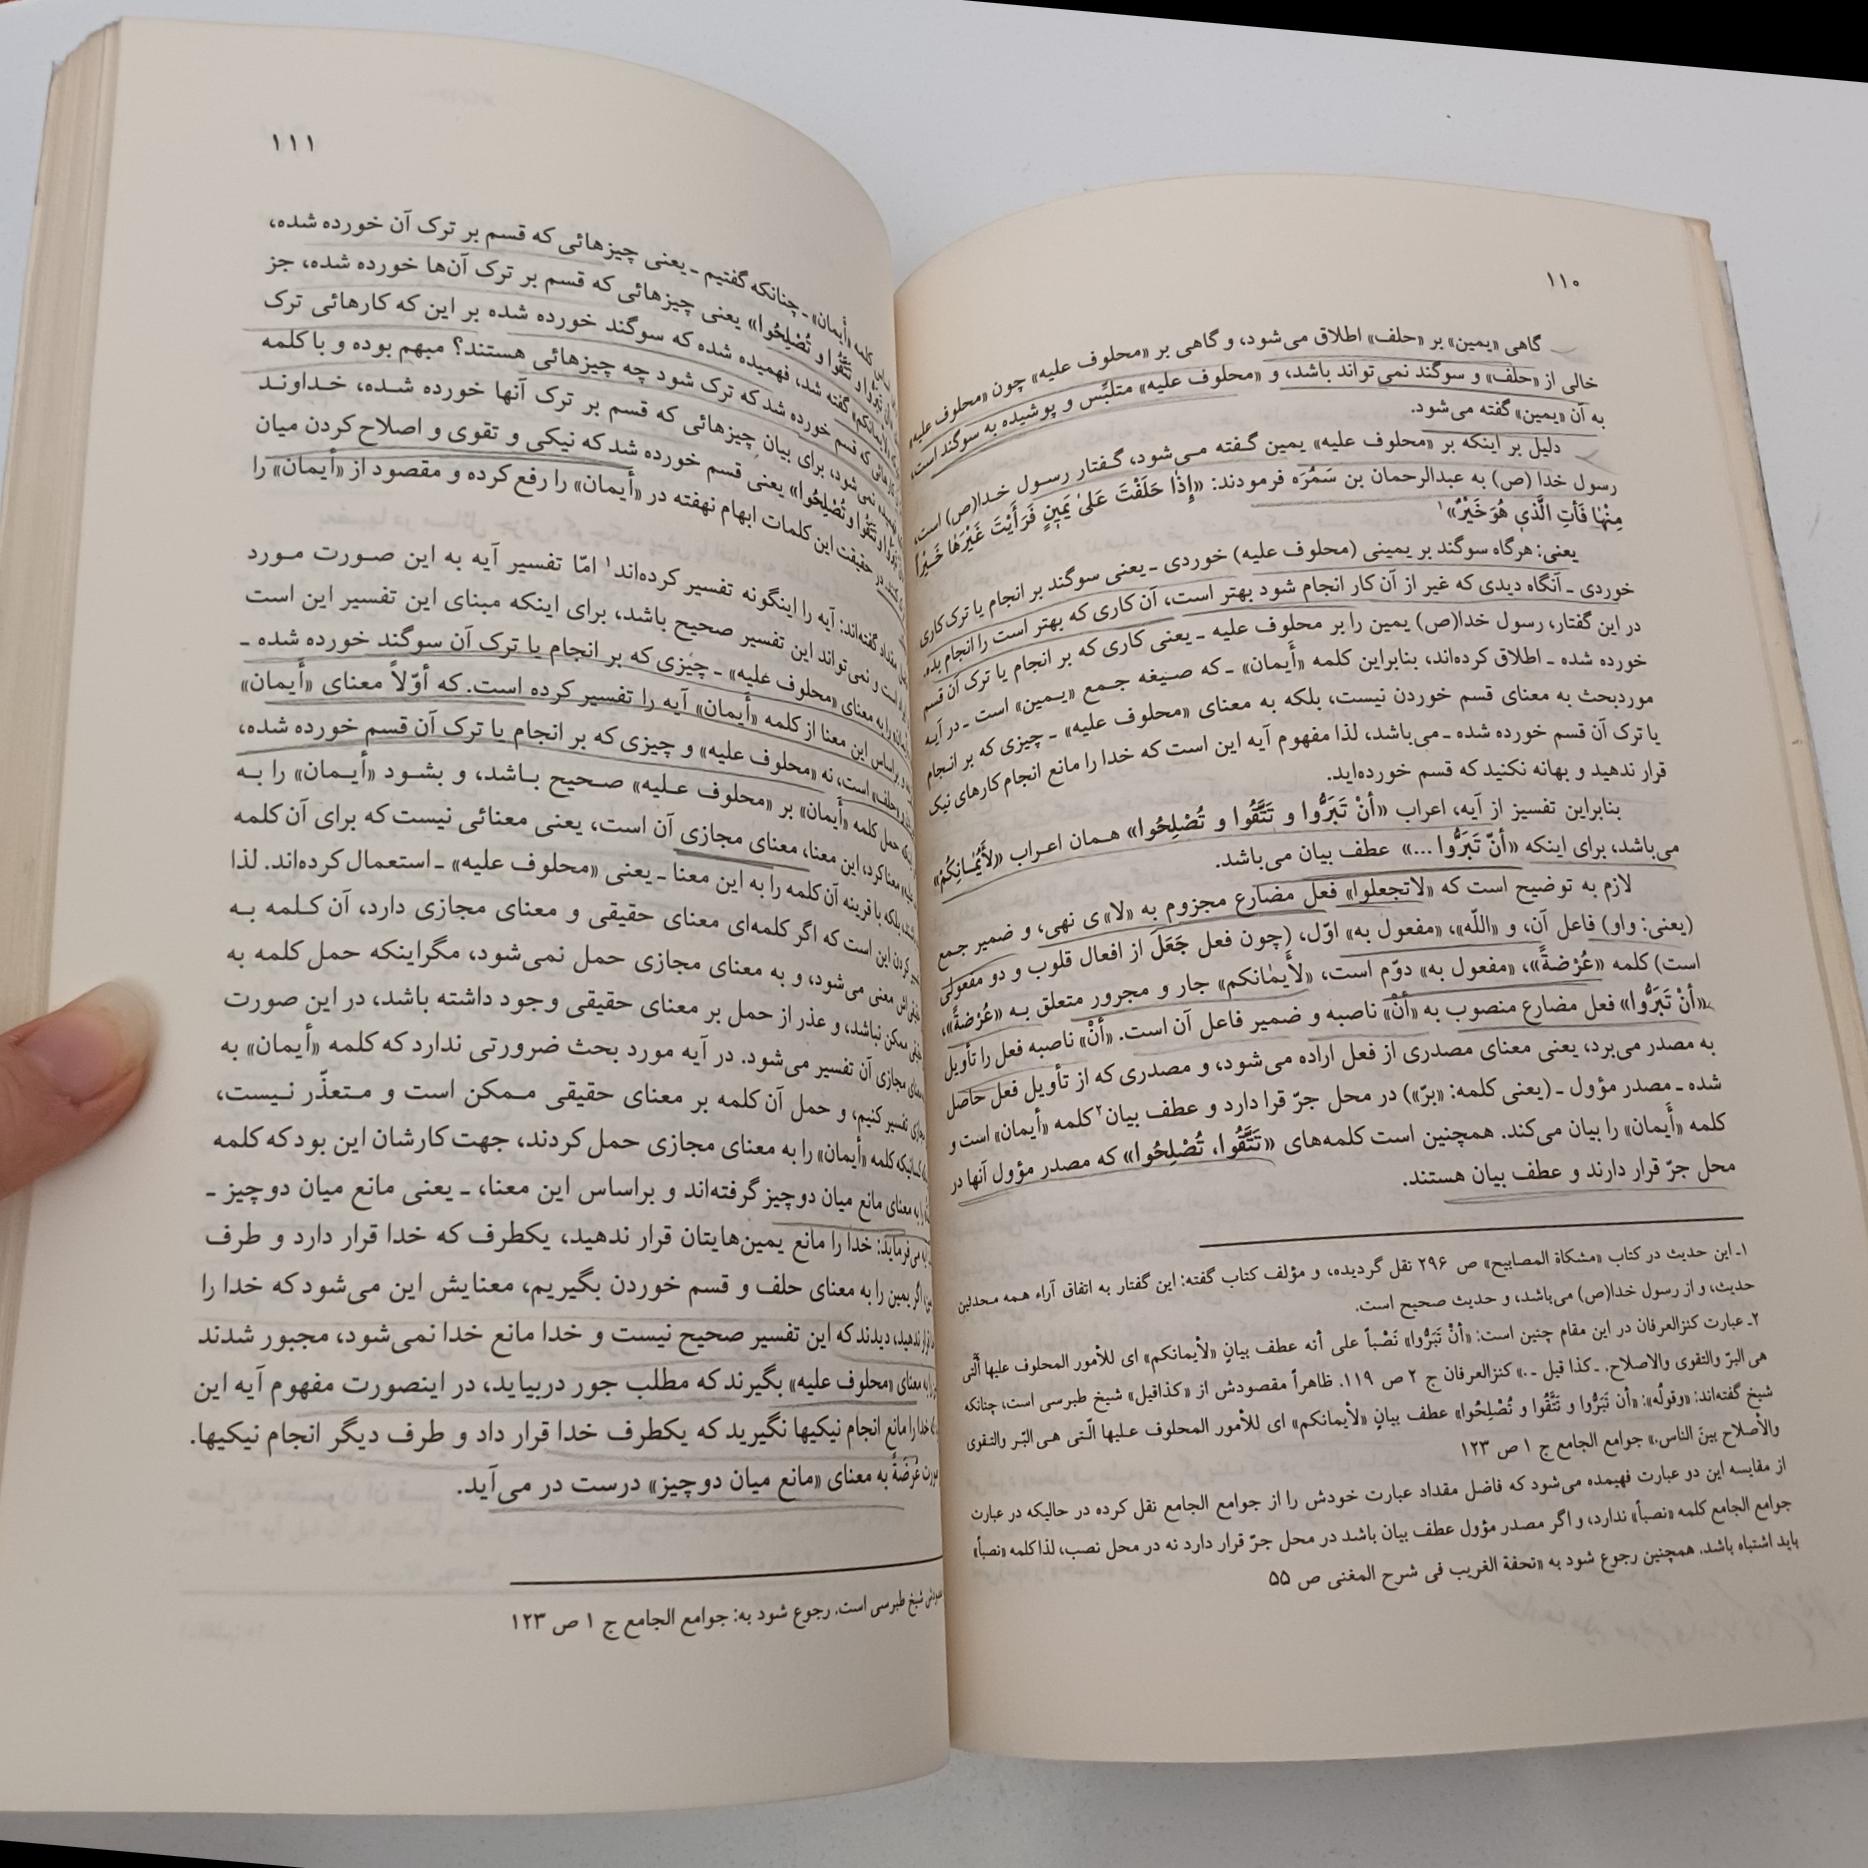 ۱۱۰
گاهی «یمین» بر «حلف» اطلاق می‌شود، و گاهی بر «محلوف علیه» چون «محلوف علیه»
خالی از «حلف» و سوگند نمی‌تواند باشد، و «محلوف علیه» متلبِّس و پوشیده به سوگند است،
به آن «یمین» گفته می‌شود.
دلیل بر اینکه بر «محلوف علیه» یمین گفته می‌شود، گفتار رسول خدا(ص) است،
رسول خدا (ص) به عبدالرحمان بن سَمُرَه فرمودند: «إِذٰا حَلَفْتَ عَلیٰ یَمِینٍ فَرَأَیْتَ غَیْرَهٰا خَیْراً
مِنْهٰا فَأتِ الَّذی هُوَ خَیْرٌ»۱
یعنی: هرگاه سوگند بر یمینی (محلوف علیه) خوردی ـ یعنی سوگند بر انجام یا ترک کاری
خوردی ـ آنگاه دیدی که غیر از آن کار انجام شود بهتر است، آن کاری که بهتر است را انجام بده.
در این گفتار، رسول خدا(ص) یمین را بر محلوف علیه ـ یعنی کاری که بر انجام یا ترک آن قسم
خورده شده ـ اطلاق کرده‌اند، بنابراین کلمه «أَیمان» ـ که صیغه جمع «یمین» است ـ در آیه
موردبحث به معنای قسم خوردن نیست، بلکه به معنای «محلوف علیه» ـ چیزی که بر انجام
یا ترک آن قسم خورده شده ـ می‌باشد، لذا مفهوم آیه این است که خدا را مانع انجام کارهای نیک
قرار ندهید و بهانه نکنید که قسم خورده‌اید.
بنابراین تفسیز از آیه، اعراب «أنْ تَبَرُّوا و تَتَّقُوا و تُصْلِحُوا» همان اعراب «لأَیْمٰانِکُمْ»
می‌باشد، برای اینکه «أنّ تَبَرُّوا ...» عطف بیان می‌باشد.
لازم به توضیح است که «لاتجعلوا» فعل مضارع مجزوم به «لا»ی نهی، و ضمیر جمع
(یعنی: واو) فاعل آن، و «اللّه»، «مفعول به» اوّل، (چون فعل جَعَلَ از افعال قلوب و دو مفعولی
است) کلمه «عُرْضةً»، «مفعول به» دوّم است، «لأَیمٰانکم» جار و مجرور متعلق به «عُرْضةً»،
«أنْ تَبَرُّوا» فعل مضارع منصوب به «أنْ» ناصبه و ضمیر فاعل آن است. «أنْ» ناصبه فعل را تأویل
به مصدر می‌برد، یعنی معنای مصدری از فعل اراده می‌شود، و مصدری که از تأویل فعل حاصل
شده ـ مصدر مؤول ـ (یعنی کلمه: «برّ») در محل جرّ قرا دارد و عطف بیان۲ کلمه «أیمان» است و
کلمه «أَیمان» را بیان می‌کند. همچنین است کلمه‌های «تَتَّقُوا، تُصْلِحُوا» که مصدر مؤول آنها در
محل جرّ قرار دارند و عطف بیان هستند.
۱ـ این حدیث در کتاب «مشکاة المصابیح» ص ۲۹۶ نقل گردیده، و مؤلف کتاب گفته: این گفتار به اتفاق آراء همه محدثین
حدیث، و از رسول خدا(ص) می‌باشد، و حدیث صحیح است.
۲ـ عبارت کنزالعرفان در این مقام چنین است: «أنْ تَبَرُّوا» نَصْباً علی أنه عطف بیانٍ «لأیمانکم» ای للأمور المحلوف علیها الّتی
هی البرّ والتقوی والاصلاح. ـ کذا قیل ـ.» کنزالعرفان ج ۲ ص ۱۱۹. ظاهراً مقصودش از «کذاقیل» شیخ طبرسی است، چنانکه
شیخ گفته‌اند: «وقولُه»: «أن تَبَرُّوا و تَتَّقُوا و تُصْلِحُوا» عطف بیانٍ «لأیمانکم» ای للأمور المحلوف علیها الّتی هی البّر والتقوی
والأصلاح بینَ الناس.» جوامع الجامع ج ۱ ص ۱۲۳
از مقایسه این دو عبارت فهیمده می‌شود که فاضل مقداد عبارت خودش را از جوامع الجامع نقل کرده در حالیکه در عبارت
جوامع الجامع کلمه «نصباً» ندارد، و اگر مصدر مؤول عطف بیان باشد در محل جرّ قرار دارد نه در محل نصب، لذا کلمه «نصباً»
باید اشتباه باشد. همچنین رجوع شود به «تحفة الغریب فی شرح المغنی ص ۵۵
۱۱۱
کلمه «أَیمان» ـ چنانکه گفتیم ـ یعنی چیزهائی که قسم بر ترک آن خورده شده،
تَبَرُّوا و تَتَّقُوا و تُصْلِحُوا» یعنی چیزهائی که قسم بر ترک آن‌ها خورده شده، جز
گفته شد، فهمیده شده که سوگند خورده شده بر این که کارهائی ترک
که قسم خورده شد که ترک شود چه چیزهائی هستند؟ مبهم بوده و با کلمه
نمی‌شود، برای بیان چیزهائی که قسم بر ترک آنها خورده شده، خداوند
تَتَّقُوا و تُصْلِحُوا» یعنی قسم خورده شد که نیکی و تقوی و اصلاح کردن میان
در حقیقت این کلمات ابهام نهفته در «أیمان» را رفع کرده و مقصود از «أیمان» را
مقداد گفته‌اند: آیه را اینگونه تفسیر کرده‌اند۱ امّا تفسیر آیه به این صورت مورد
است و نمی‌تواند این تفسیر صحیح باشد، برای اینکه مبنای این تفسیر این است
را به معنای «محلوف علیه» ـ چیزی که بر انجام یا ترک آن سوگند خورده شده ـ
براساس این معنا از کلمه «أیمان» آیه را تفسیر کرده است. که أوّلاً معنای «أَیمان»
«حلف» است، نه «محلوف علیه» و چیزی که بر انجام یا ترک آن قسم خورده شده،
حمل کلمه «أَیمان» بر «محلوف علیه» صحیح باشد، و بشود «أیمان» را به
معنا کرد، این معنا، معنای مجازی آن است، یعنی معنائی نیست که برای آن کلمه
بلکه با قرینه آن کلمه را به این معنا ـ یعنی «محلوف علیه» ـ استعمال کرده‌اند. لذا
کردن این است که اگر کلمه‌ای معنای حقیقی و معنای مجازی دارد، آن کلمه به
معنی می‌شود، و به معنای مجازی حمل نمی‌شود، مگراینکه حمل کلمه به
ممکن نباشد، و عذر از حمل بر معنای حقیقی وجود داشته باشد، در این صورت
مجازی آن تفسیر می‌شود. در آیه مورد بحث ضرورتی ندارد که کلمه «أیمان» به
تفسیر کنیم، و حمل آن کلمه بر معنای حقیقی ممکن است و متعذّر نیست،
کلمه «أیمان» را به معنای مجازی حمل کردند، جهت کارشان این بود که کلمه
به معنای مانع میان دوچیز گرفته‌اند و براساس این معنا، ـ یعنی مانع میان دوچیز ـ
می‌فرماید: خدا را مانع یمین‌هایتان قرار ندهید، یکطرف که خدا قرار دارد و طرف
اگر یمین را به معنای حلف و قسم خوردن بگیریم، معنایش این می‌شود که خدا را
ندهید، دیدند که این تفسیر صحیح نیست و خدا مانع خدا نمی‌شود، مجبور شدند
معنای «محلوف علیه» بگیرند که مطلب جور دربیاید، در اینصورت مفهوم آیه این
خدا را مانع انجام نیکیها نگیرید که یکطرف خدا قرار داد و طرف دیگر انجام نیکیها.
عُرضَةً به معنای «مانع میان دوچیز» درست در می‌آید.
شیخ طبرسی است. رجوع شود به: جوامع الجامع ج ۱ ص ۱۲۳